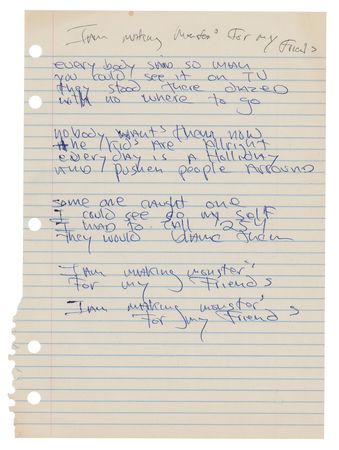 I am making Monster's For my Friend s
every body said so whan
you could see it on TV
they stood there dazed
with no where to go
nobody wants them now
the kids Are Allright
everyday is A Holliday
AND pushen people Arround
some one caught one
I could see do my self
I had to call
They would blame them
I am making monster's
For my Friend s
I am making monster's
For my Friend s